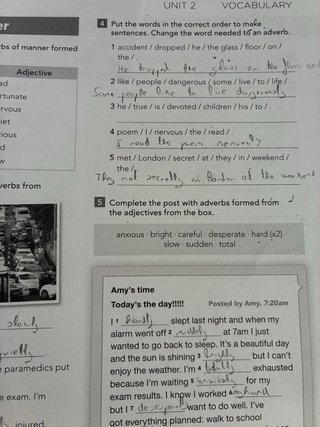 UNIT 2 VOCABULARY
er
rbs of manner formed
Adjective
ad
ortunate
ervous
iet
rious
ad
w
verbs from
slowly
quietly
e paramedics put
e exam. I'm
injured.
4 Put the words in the correct order to make
sentences. Change the word needed to an adverb.
1 accident / dropped / he / the glass / floor / on /
the / .
He dropped the glass on the floor
2 like / people / dangerous / some / live / to / life / .
Some people like to live dangerously
3 he / true / is / devoted / children / his / to / .
4 poem / I / nervous / the / read / .
I read the poem nervously
5 met / London / secret / at / they / in / weekend /
the / .
They met secretly in London at the weekend
5 Complete the post with adverbs formed from
the adjectives from the box.
anxious · bright · careful · desperate · hard (x2)
slow · sudden · total
Amy's time
Today's the day!!!!! Posted by Amy, 7:20am
I 1 slept last night and when my
alarm went off 2 at 7am I just
wanted to go back to sleep. It's a beautiful day
and the sun is shining 3 brightly but I can't
enjoy the weather. I'm 4 totally exhausted
because I'm waiting 5 for my
exam results. I know I worked 6 hard
but I 7 want to do well. I've
got everything planned: walk to school